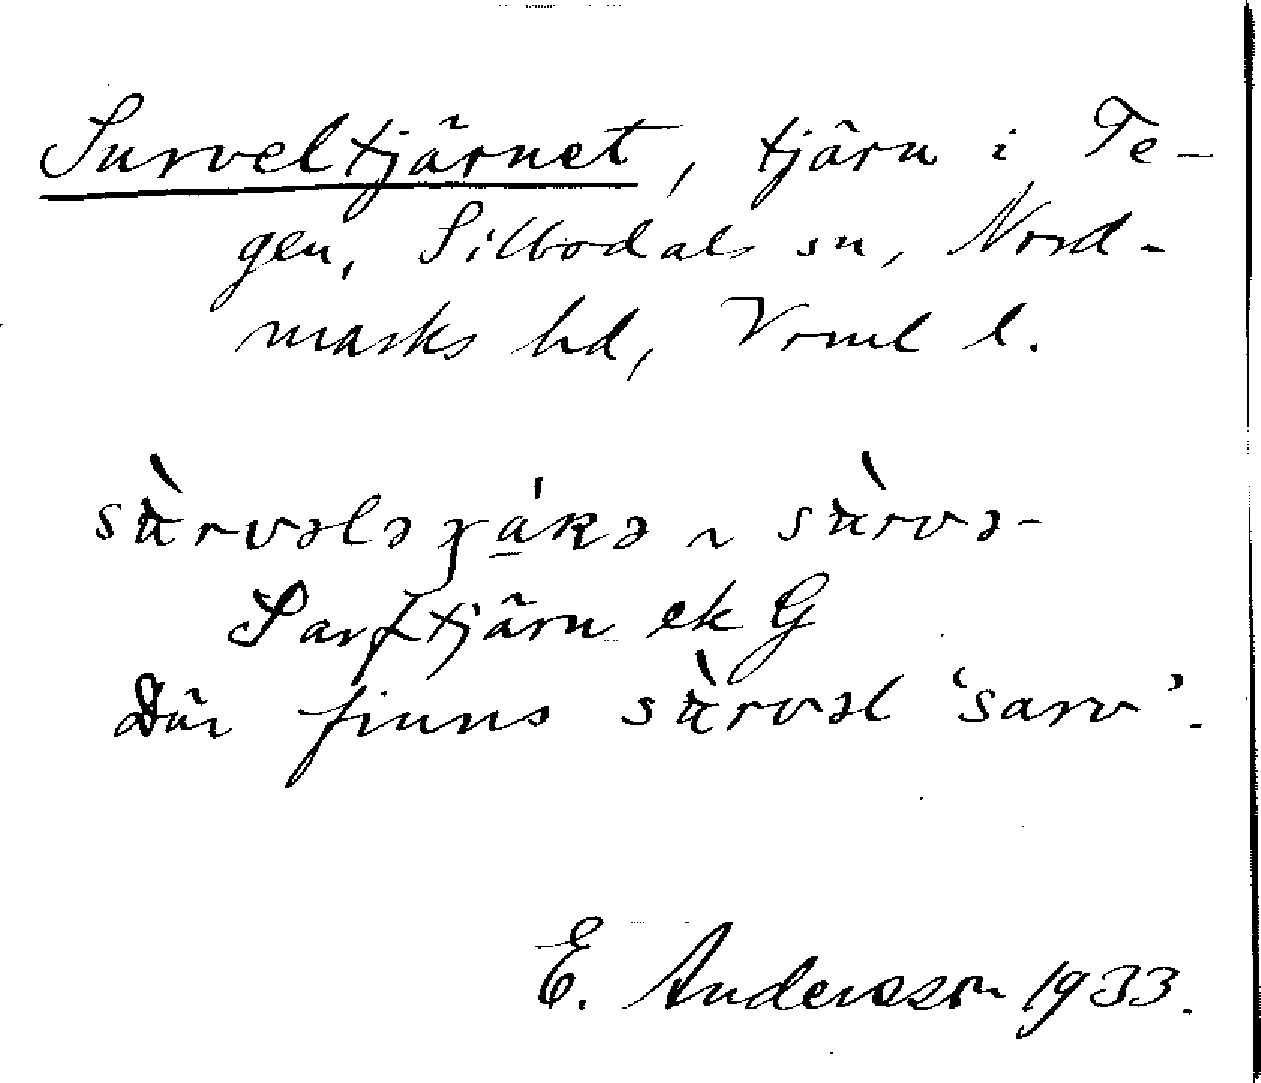 Surveltjärnet, tjärn i Te-
gen, Silbodals sn, Nord-
marks hd, Vrml l.
sàrvələ ~ sàrvə-
Sarftjärn ek G
Där finns sàrvəl ‘sarv’.
E. Andersson 1933.